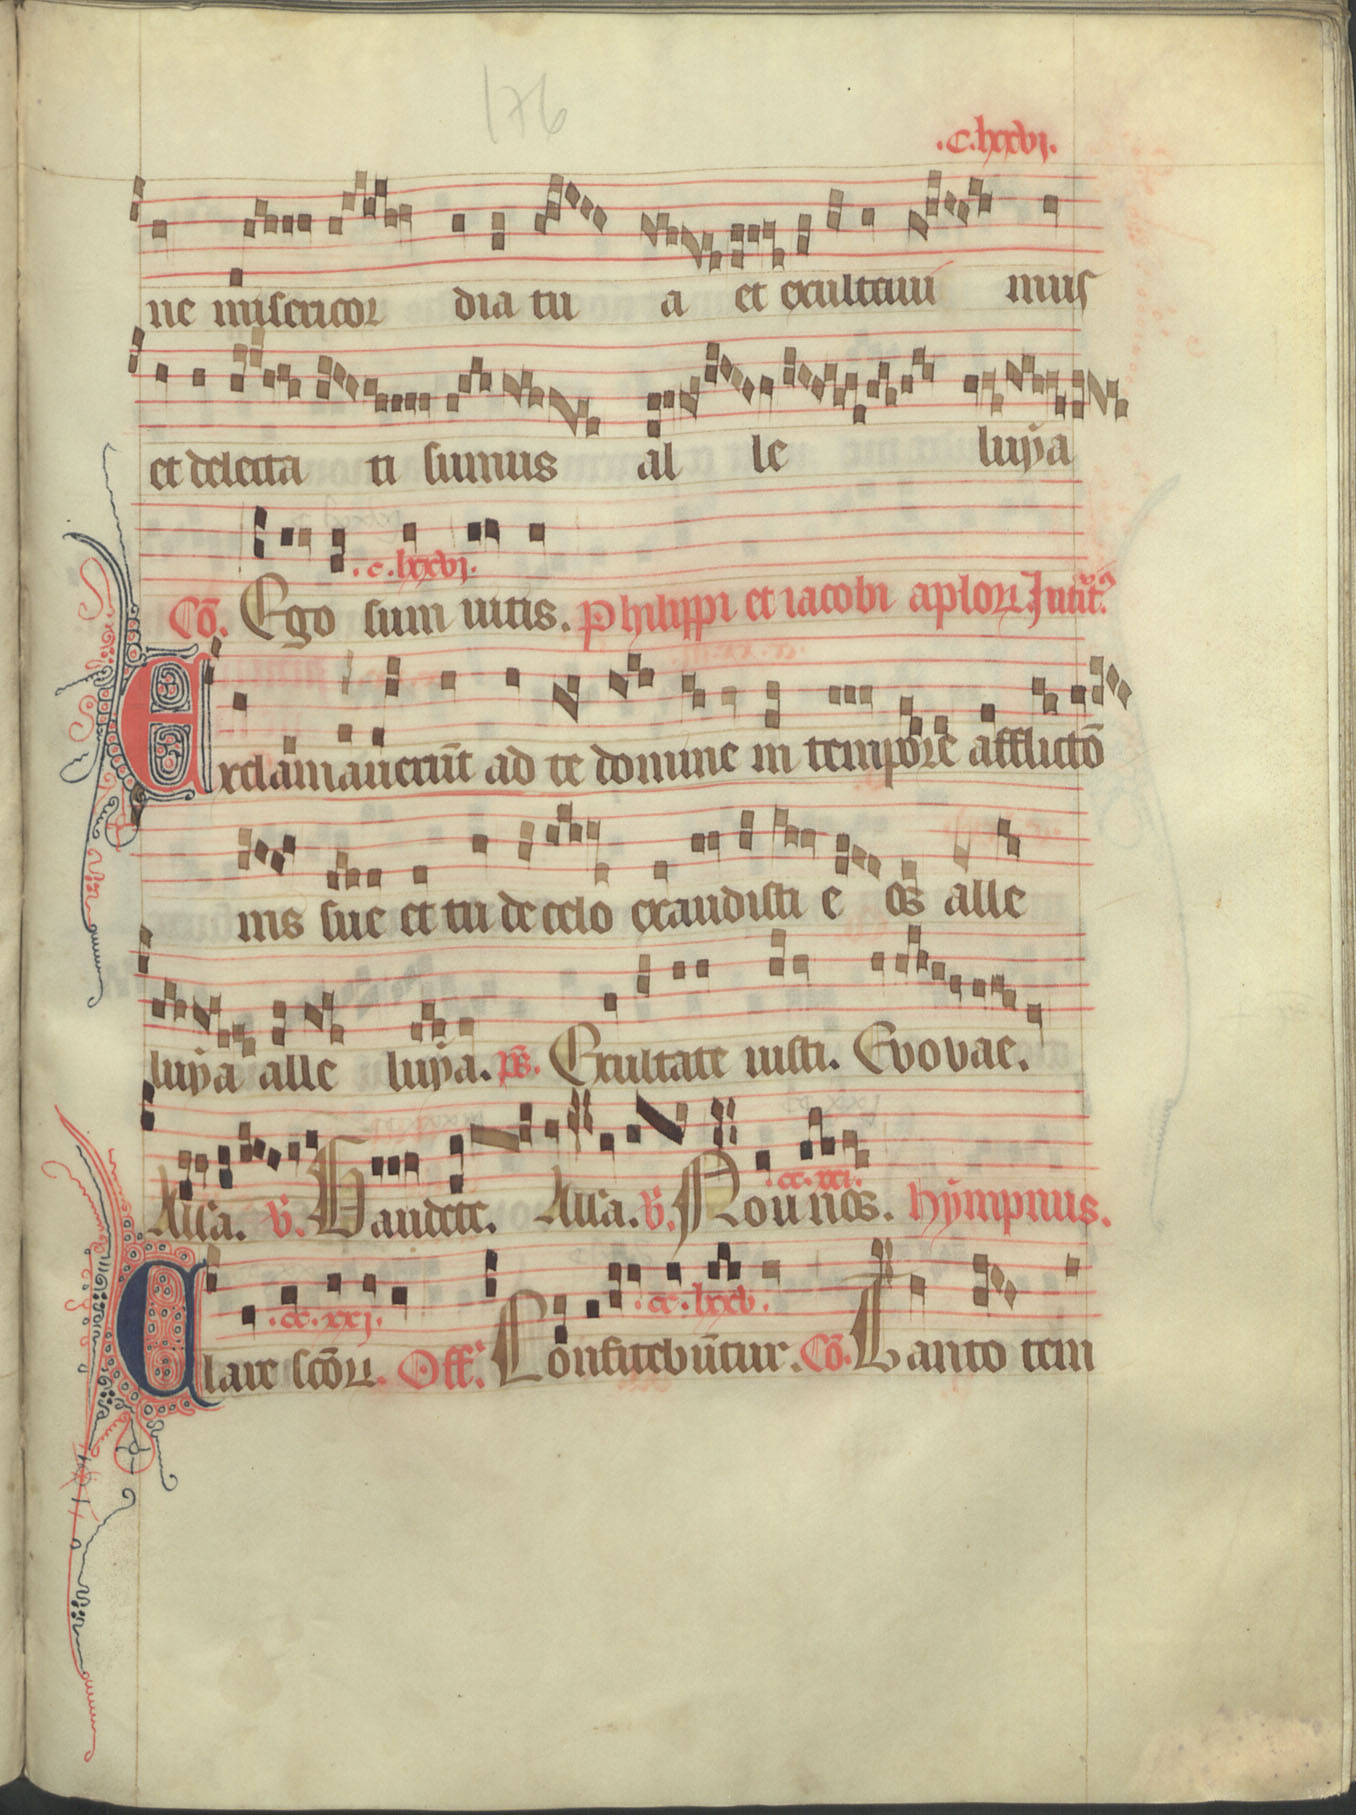 176
.c.lxxvi.
ne misericor dia tu a et exultaui mus
et delecta ti sumus al le luÿa
.c.lxxvi.
Cō. Ego sum uitis. Philippi et iacobi
Exclamauerūt ad te domine in tempore afflictō
nis sue et tu de celo exaudisti e os alle
luÿa alle luÿa. ps̄. Exultate iusti. Evovae.
Alla. v̄. Gaudete. Alla. v̄. Non uos. hÿmpnus.
.cc.xxj.
lare sc̄oꝝ. Off. Confitebūtur. Cō. Tanto tem